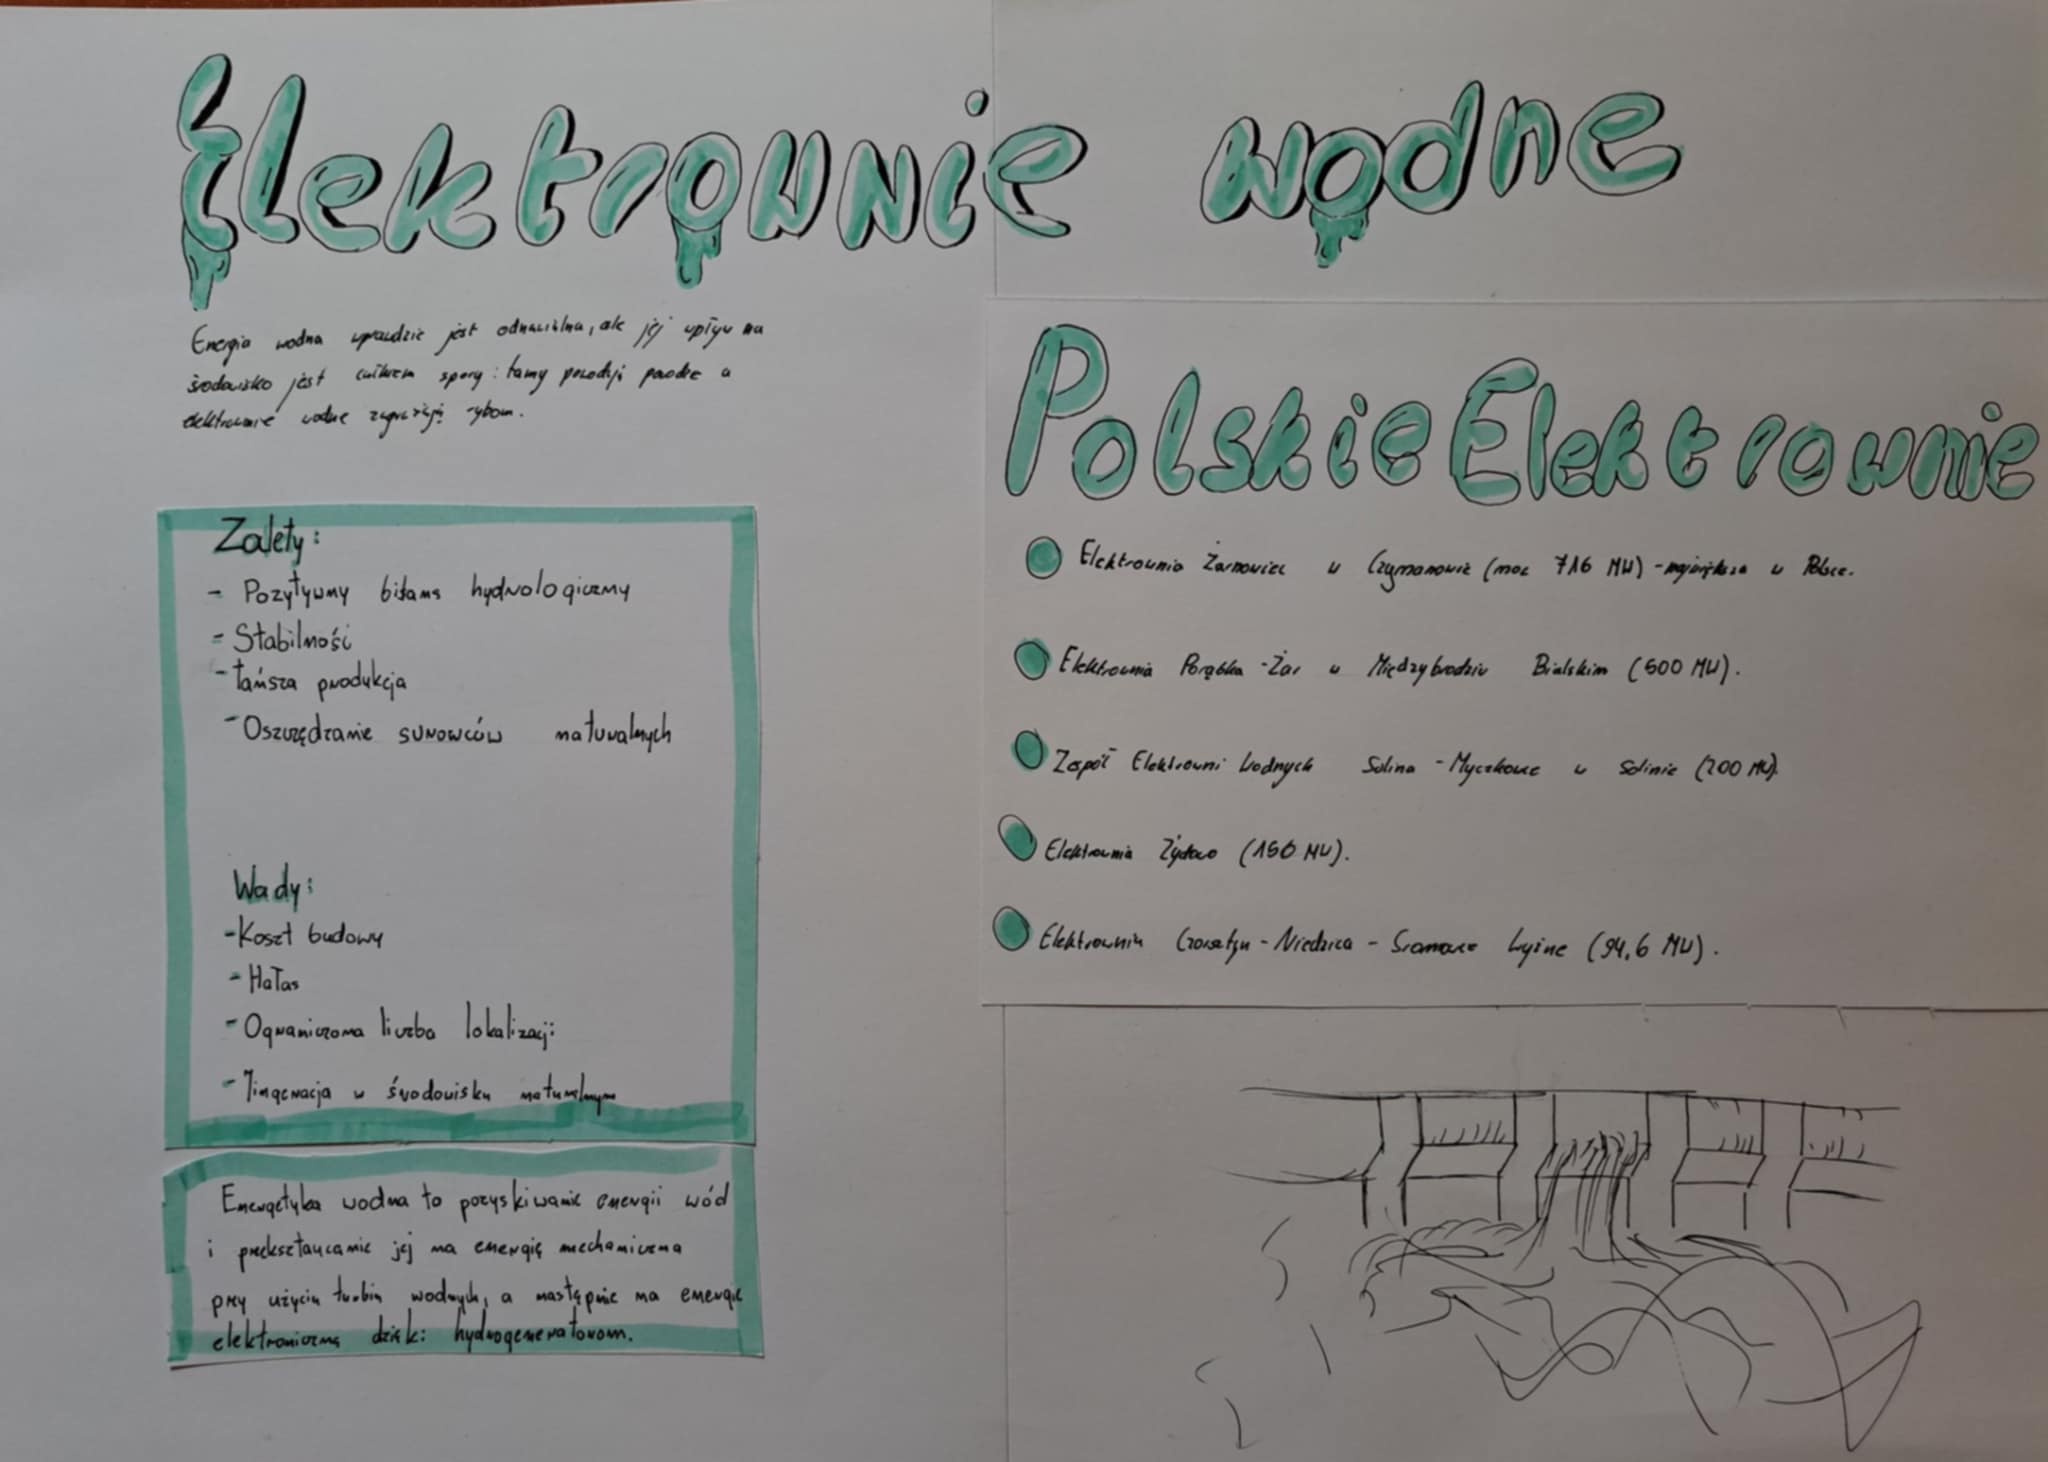 Elektrownie wodne
Energia wodna wprawdzie jest odnawialna, ale jej wpływ na
środowisko jest całkiem spory: tamy powodują powodzie a
elektrownie wodne zagrażają rybom.
Zalety:
- Pozytywny bilans hydrologiczny
- Stabilność
- tańsza produkcja
- Oszczędzanie surowców naturalnych
Wady:
- Koszt budowy
- Hałas
- Ograniczona liczba lokalizacji
- Ingerencja w środowisku naturalnym
Energetyka wodna to pozyskiwanie energii wód
i przekształcanie jej na energię mechaniczną
przy użyciu turbin wodnych, a następnie na energię
elektroniczną dzięki hydrogeneratorom.
Polskie Elektrownie
Elektrownia Żarnowiec w Czymanowie (moc 716 MW) - największa w Polsce.
Elektrownia Porąbka - Żar w Międzybrodziu Bialskim (500 MW).
Zespół Elektrowni Wodnych Solina - Myczkowce w Solinie (200 MW).
Elektrownia Żydowo (156 MW).
Elektrownia Czorsztyn - Niedzica - Sromowce Wyżne (94,6 MW).